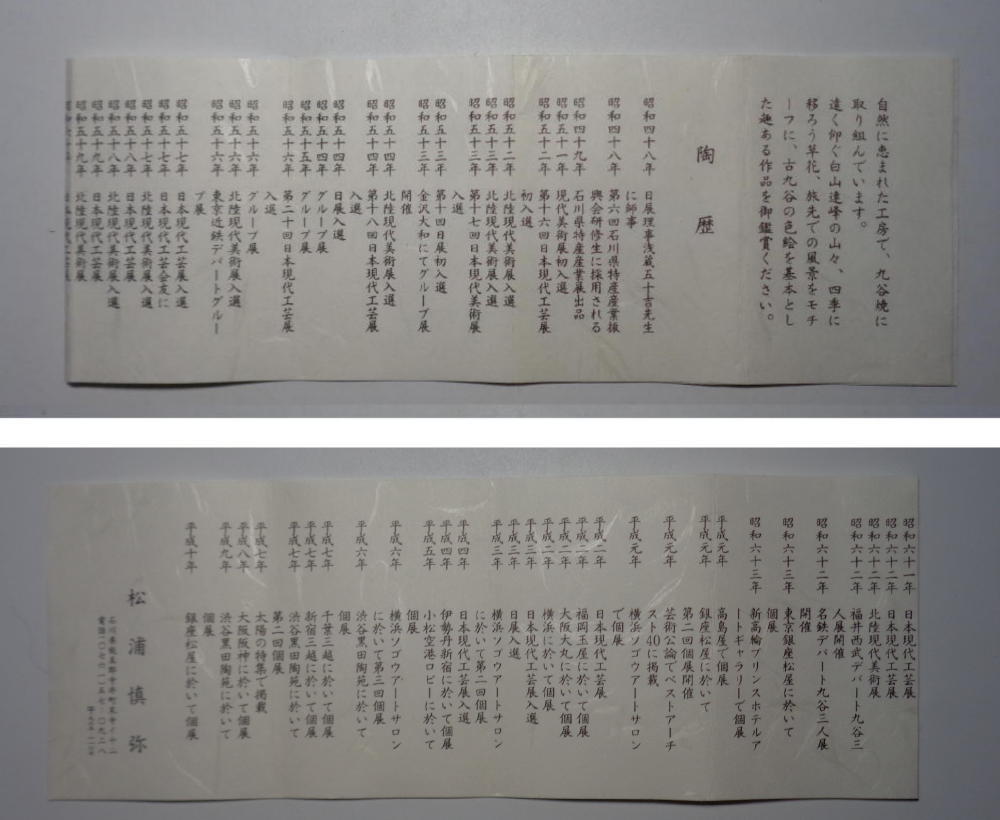 自然に恵まれた工房で、九谷焼に
取り組んでいます。
遠く仰ぐ白山遠峰の山々、四季に
移ろう草花、旅先での風景をモチ
ーフに、古九谷の色絵を基本とし
た趣ある作品を御鑑賞ください。
陶歴
昭和四十八年 日展理事浅蔵五十吉先生
に師事
昭和四十八年 第六回石川県特産産業振
興会研修生に採用される
昭和四十九年 石川県特産産業展出品
昭和五十一年 現代美術展初入選
昭和五十二年 第十六回日本現代工芸展
初入選
昭和五十二年 北陸現代美術展入選
昭和五十三年 北陸現代美術展入選
昭和五十三年 第十七回日本現代美術展
入選
昭和五十三年 第十四回日展初入選
昭和五十三年 金沢大和にてグループ展
開催
昭和五十四年 北陸現代美術展入選
昭和五十四年 第十八回日本現代工芸展
入選
昭和五十四年 日展入選
昭和五十四年 グループ展
昭和五十五年 グループ展
昭和五十六年 第二十回日本現代工芸展
入選
昭和五十六年 グループ展
昭和五十六年 北陸現代美術展入選
昭和五十六年 東京近鉄デパートグルー
プ展
昭和五十七年 日本現代工芸展入選
昭和五十七年 日本現代工芸会会友に
昭和五十七年 北陸現代美術展入選
昭和五十八年 日本現代工芸展
昭和五十八年 北陸現代美術展入選
昭和五十九年 日本現代工芸展
昭和五十九年 北陸現代美術展
昭和六十一年 日本現代工芸展
昭和六十二年 日本現代工芸展
昭和六十二年 北陸現代美術展
昭和六十二年 福井西武デパート九谷三
人展開催
昭和六十二年 名鉄デパート九谷三人展
開催
昭和六十三年 東京銀座松屋に於いて
個展
昭和六十三年 新高輪プリンスホテルア
ートギャラリーで個展
平成元年 高島屋で個展
平成元年 銀座松屋に於いて
第二回個展開催
平成元年 芸術公論でベストアーチ
スト40に掲載
平成元年 横浜ソゴウアートサロン
で個展
平成二年 日本現代工芸展
平成二年 福岡岩田玉屋に於いて個展
平成二年 大阪大丸に於いて個展
平成二年 横浜に於いて個展
平成三年 日本現代工芸展入選
平成三年 日展入選
平成三年 横浜ソゴウアートサロン
に於いて第二回個展
平成四年 日本現代工芸展入選
平成四年 伊勢丹新宿に於いて個展
平成五年 小松空港ロビーに於いて
個展
平成六年 横浜ソゴウアートサロン
に於いて第三回個展
平成六年 渋谷黒田陶苑に於いて
個展
平成七年 千葉三越に於いて個展
平成七年 新宿三越に於いて個展
平成七年 渋谷黒田陶苑に於いて
第二回個展
平成七年 太陽の特集で掲載
平成八年 大阪阪神に於いて個展
平成九年 渋谷黒田陶苑に於いて
個展
平成十年 銀座松屋に於いて個展
松浦慎弥